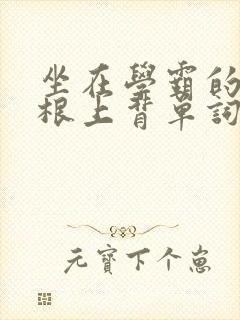 坐在學霸的
根上背單詞
元寶下个崽